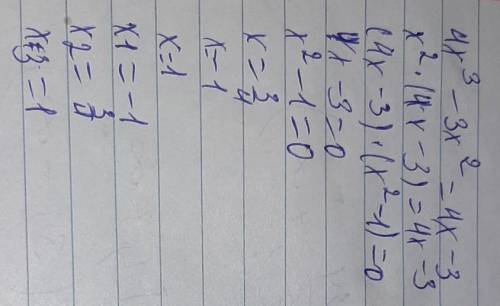 4x³ - 3x² = 4x - 3
x² · (4x - 3) = 4x - 3
(4x - 3) · (x² - 1) = 0
4x - 3 = 0
x² - 1 = 0
x = 3/4
x - 1
x = 1
x1 = -1
x2 = 3/4
x3 = 1